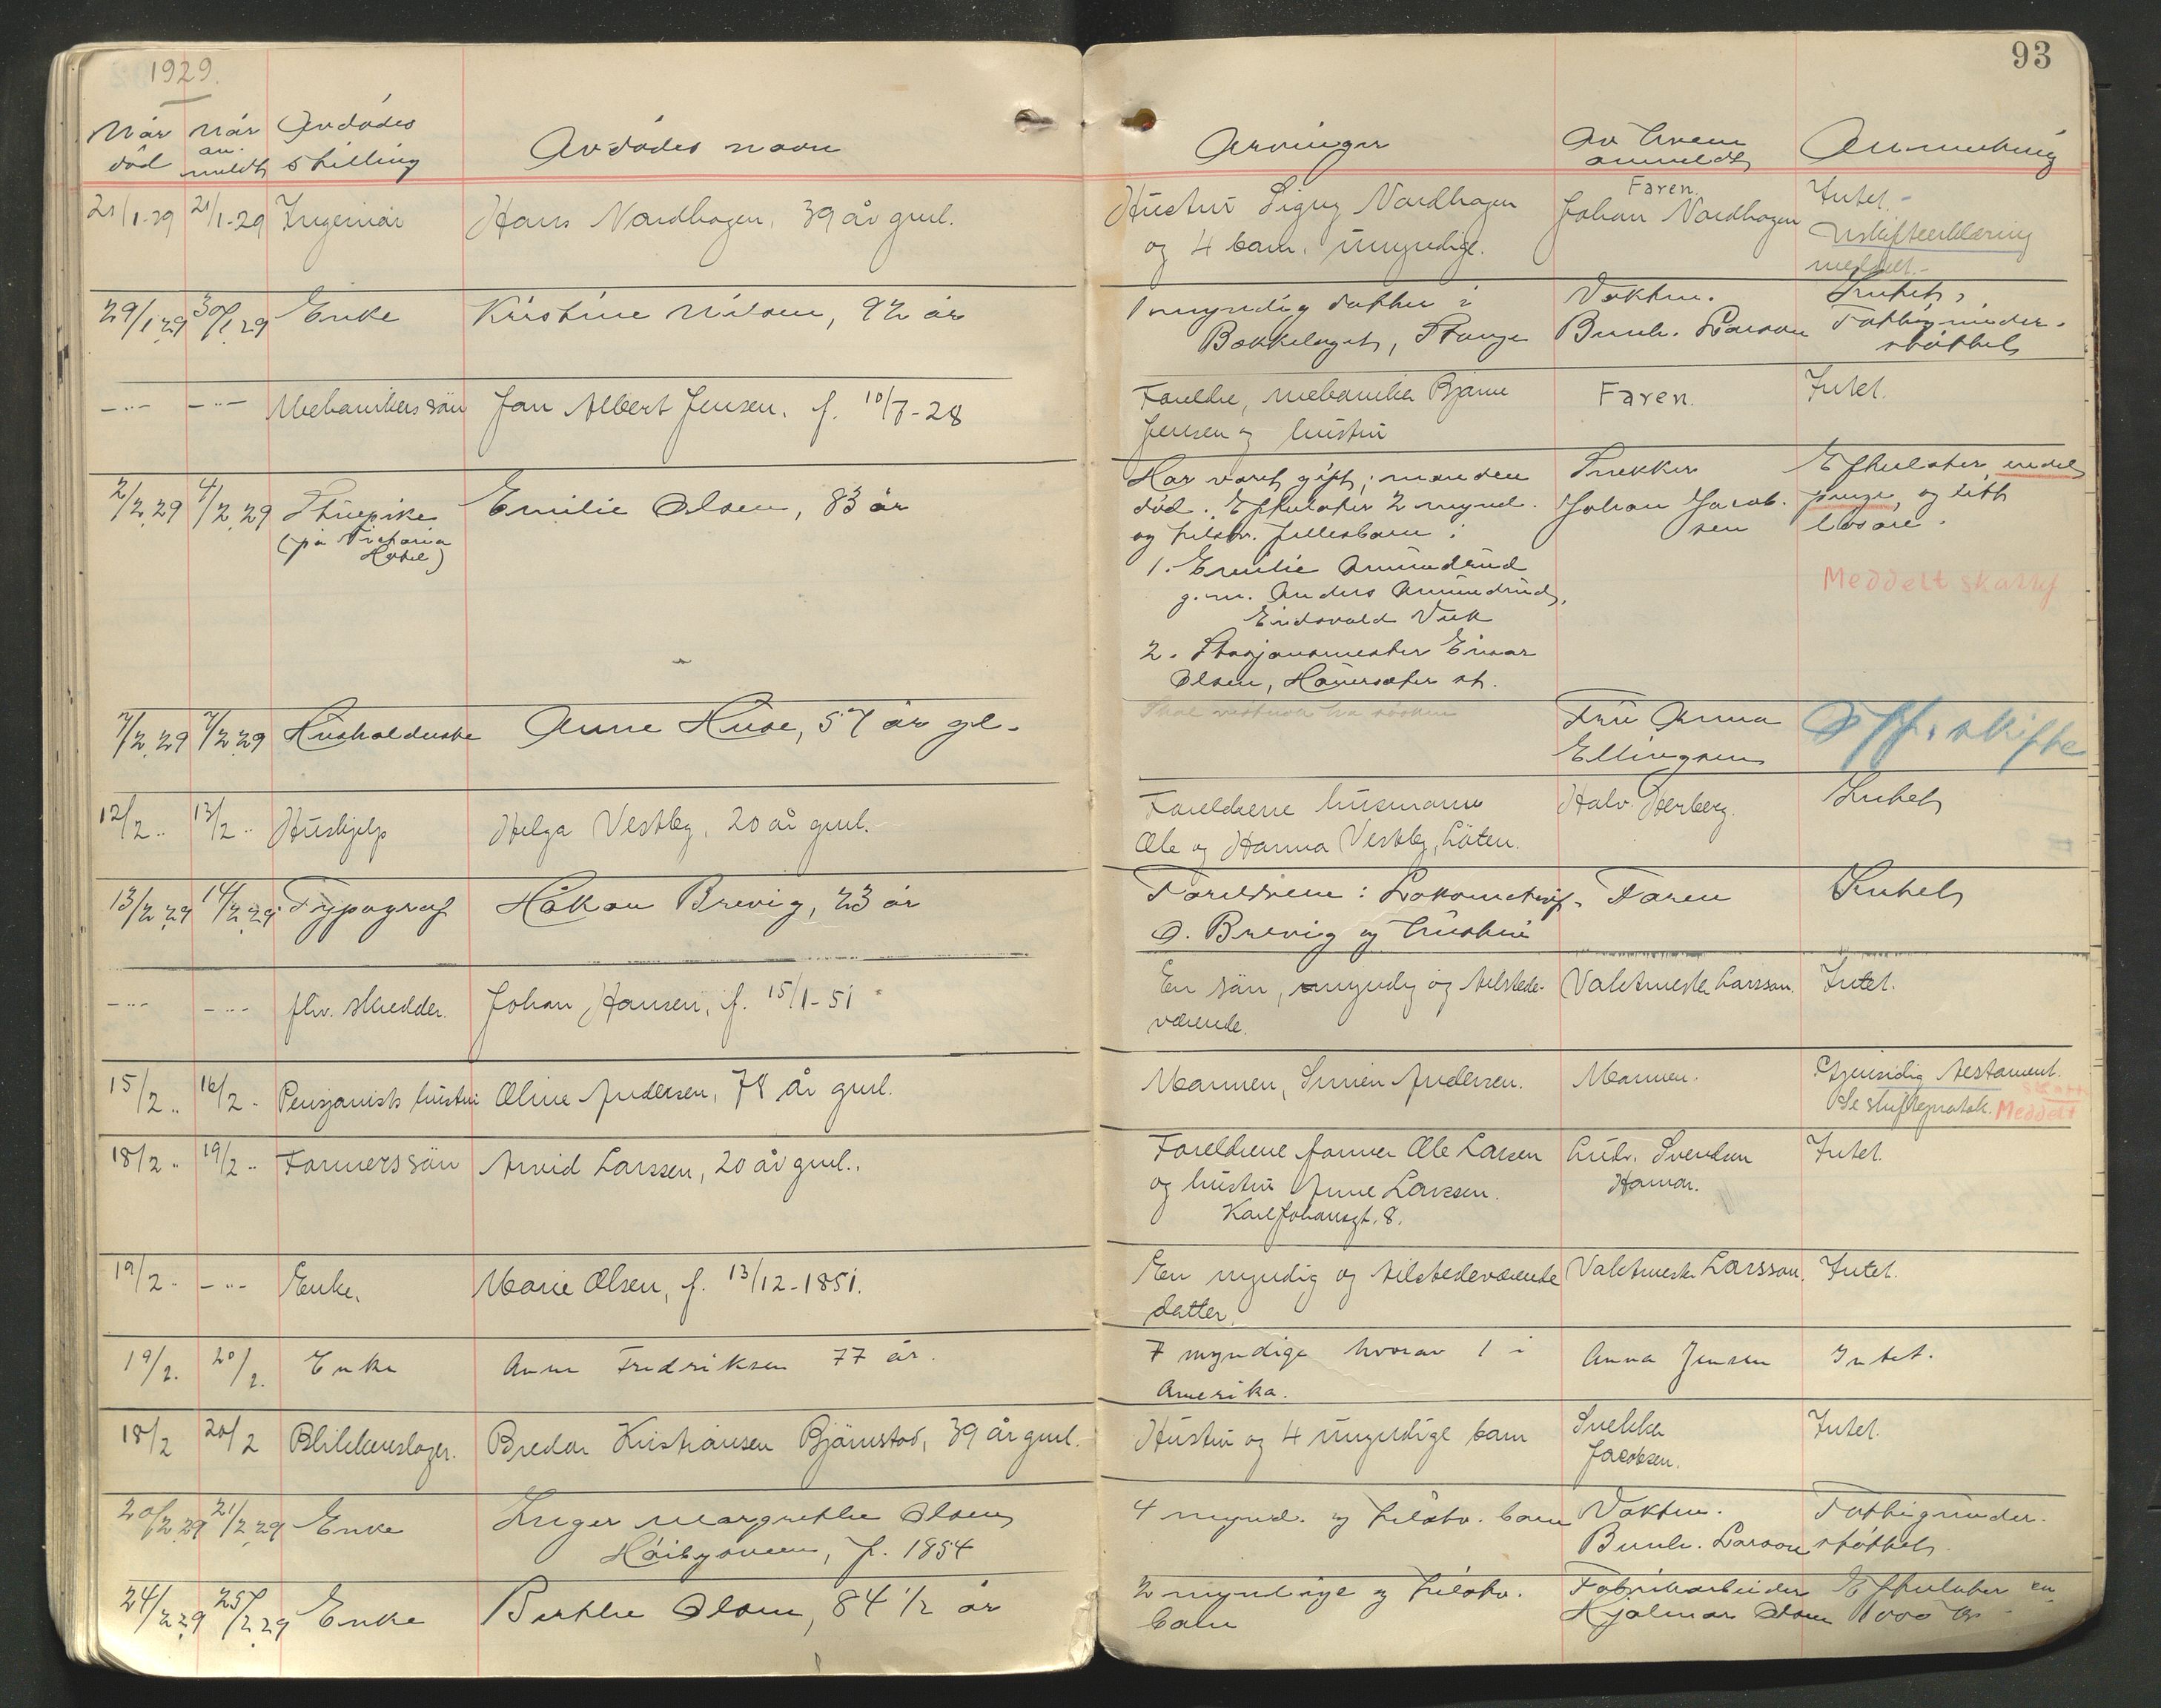 1929.
93
Når død
Når an- meldt
Avdödes stilling
Avdödes navn
Arvinger
Av hvem anmeldt
Anmerkning
21/1-29 21/1-29 Ingeniör Hans Nordhagen, 39 år gml.
Hustru Signy Nordhagen
og 4 barn, umyndige.
Faren.
Johan Nordhagen
Intet.-
Uskifteerklæring
meddelt.-
29/1.29 30/1.29 Enke Kristine Nilsen, 92 år
1 myndig datter i
Bækkelaget, Stange
Vaktm.
Bernh. Larsson
Intet,
Fattigunder-
støttet
-"- -"- Mekanikers sön Jan Albert Jensen. f. 10/7-28
Foreldre, mekaniker Bjarne
Jensen og hustru
Faren.
Intet.
2/2.29 4/2.29 Stuepike Emilie Olsen, 83 år
(på Victoria
Hotel)
Har vært gift; manden
død. Efterlater 2 mynd.
og tilstv. fellesbarn:
1. Emilie Amundrud
g.m. Anders Amundrud,
Eidsvold Verk
2. Stasjonsmester Einar
Olsen, Hauersæter st.
Snekker
Johan Jacob-
sen
Efterlater endel
penge, og litt
løsøre.
Meddelt skattef
7/2.29 7/2.29 Husholderske Anne Huse, 57 år gl.
Skal visstnok ha søsken
Fru Anna
Ellingsen
Off. skifte
12/2 .. 13/2 .. Hushjelp Helga Vestby, 20 år gml.
Foreldrene husmann
Ole og Hanna Vestby, Löten.
Halv. Herberg.
Intet
13/2.29 14/2.29 Typograf Håkon Brevig, 23 år
Foreldrene: Lokomotivf.
O. Brevig og hustru
Faren
Intet
-"- -"- fhv. skredder. Johan Hansen, f. 15/1-51
En sön, myndig og tilstede-
værende.
Vaktmester Larsson.
Intet.
15/2 .. 16/2 .. Pensjonists hustru Oline Andersen, 78 år gml.
Mannen, Simen Andersen.
Mannen.
Gjensidig testament.
Se skifteprotok. Meddelt
skatte
18/2 .. 19/2 .. Farmers sön Arvid Larssen, 20 år gml..
Foreldrene farmer Ole Larsen
og hustru Anne Larssen.
Karl Johansgt. 8.
Ludv. Svendsen
Hamar.
Intet.
19/2 .. -"- Enke. Marie Olsen, f. 13/12-1851.
En myndig og tilstedeværende
datter.
Vaktmester Larsson.
Intet.
19/2. 20/2. Enke Anne Fredriksen 77 år.
7 myndige hvorav 1 i
Amerika.
Anna Jensen
Intet.
18/2 20/2 Blikkenslager. Bredar Kristiansen Bjørnstad, 39 år gml.
Hustru og 4 umyndige barn
Snekker
Jacobsen.
Intet.
20/2.29 21/2.29 Enke Inger Margrethe Olsen
Høibysveen, f. 1854
4 mynd. og tilstv. barn
Vaktm.
Bernh. Larsson
Fattigunder-
støttet
24/2.29 25/2.29 Enke Berthe Olsen, 84 1/2 år
2 myndige og tilstv.
barn
Fabrikarbeider
Hjalmar Olsen
Efterlater en
1000 kr